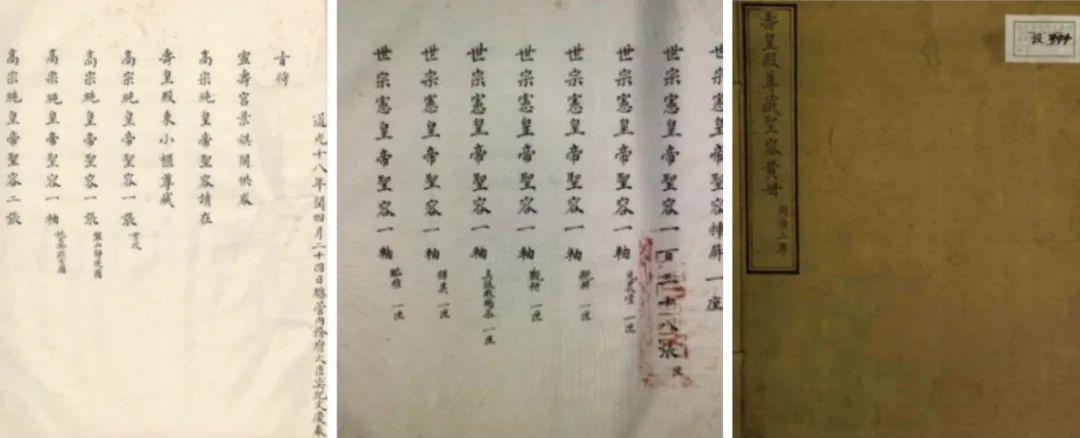 道光十八年閏四月二十四日總管內務府大臣奕紀文慶奉
旨將
寧壽宮景祺閣供奉
高宗純皇帝聖容請在
壽皇殿東小櫃尊藏
高宗純皇帝聖容一張
高宗純皇帝聖容一張
高宗純皇帝聖容一軸
高宗純皇帝聖容二張
世宗憲皇帝聖容插屏一座
世宗憲皇帝聖容一百三十八張 匣
世宗憲皇帝聖容一軸 一匣
世宗憲皇帝聖容一軸 一匣
世宗憲皇帝聖容一軸 觀耕 一匣
世宗憲皇帝聖容一軸 一匣
世宗憲皇帝聖容一軸 一匣
世宗憲皇帝聖容一軸 一匣
壽皇殿尊藏聖容黃冊